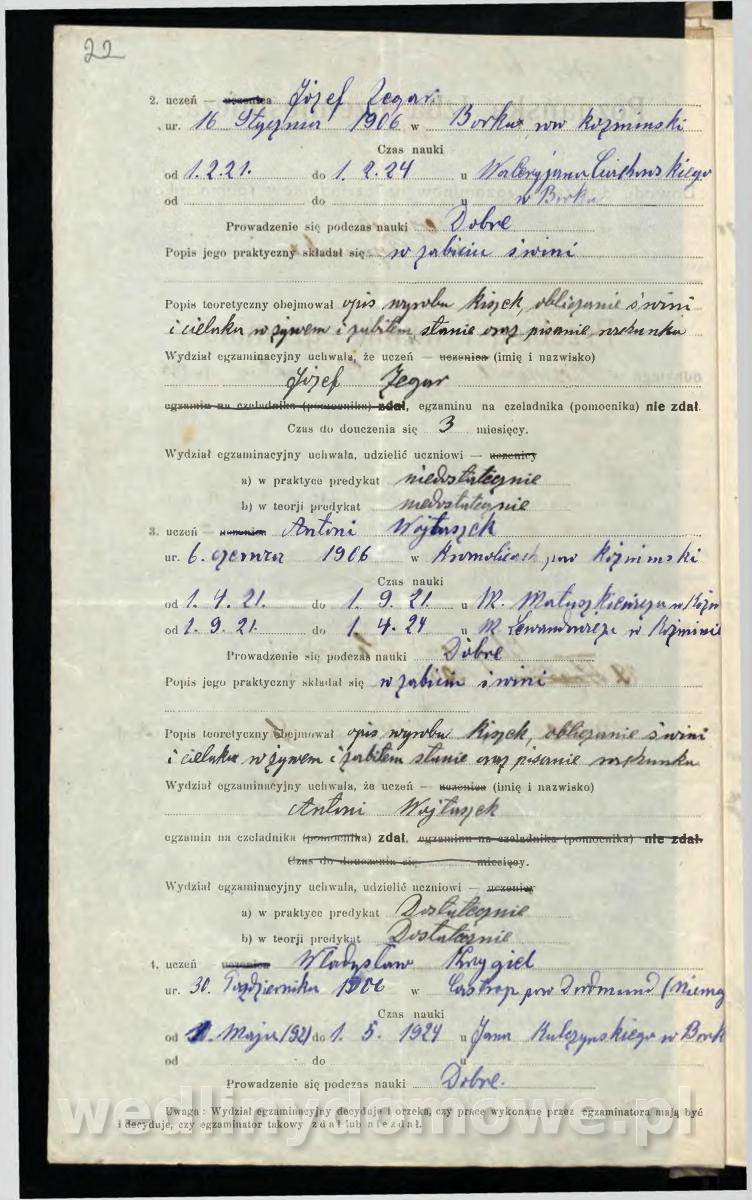 22
2. uczeń — uczenica Józef Zegar
ur. 16 Stycznia 1906 w Borku pow Koźminski
Czas nauki
od 1.2.21. do 1.2.24 u Waleryjana
od do u w Borku
Prowadzenie się podczas nauki Dobre
Popis jego praktyczny składał się w zabiciu świni
Popis teoretyczny obejmował opis wyrobu kiszek, obliczanie świni
i cielaka w żywem i zabitem stanie oraz pisanie rachunku
Wydział egzaminacyjny uchwala, że uczeń — uczenica (imię i nazwisko)
Józef Zegar
egzamin na czeladnika (pomocnika) zdał, egzaminu na czeladnika (pomocnika) nie zdał.
Czas do douczenia się 3 miesięcy.
Wydział egzaminacyjny uchwala, udzielić uczniowi — uczenicy
a) w praktyce predykat niedostatecznie
b) w teorji predykat niedostatecznie
3. uczeń — uczenica Antoni Wojtaszek
ur. 6. czerwca 1906 w Kromolicach pow Koźminski
Czas nauki
od 1.4.21. do 1.9.21. u M. w Koźm
od 1.9.21. do 1.4.24 u M Lewandowsiego w Koźminie
Prowadzenie się podczas nauki Dobre
Popis jego praktyczny składał się w zabiciu świni
Popis teoretyczny obejmował opis wyrobu kiszek, obliczanie świni
i cielaka w żywem i zabitem stanie oraz pisanie rachunku
Wydział egzaminacyjny uchwala, że uczeń — uczenica (imię i nazwisko)
Antoni Wojtaszek
egzamin na czeladnika (pomocnika) zdał, egzaminu na czeladnika (pomocnika) nie zdał.
Czas do douczenia się miesięcy.
Wydział egzaminacyjny uchwala, udzielić uczniowi — uczenicy
a) w praktyce predykat Dostatecznie
b) w teorji predykat Dostatecznie
4. uczeń uczenica Władysław Krygiel
ur. 30. Października 1906 w Castrop pow Dordmund (Niemcy
Czas nauki
od 1. Maja 1921 do 1. 5. 1924 u Jana Kulczynskiego w Bork
od do u
Prowadzenie się podczas nauki Dobre.
Uwaga: Wydział egzaminacyjny decyduje i orzeka, czy prace wykonane przez egzaminatora mają być
i decyduje, czy egzaminator takowy zdał lub nie zdał.
wedlinydomowe.pl